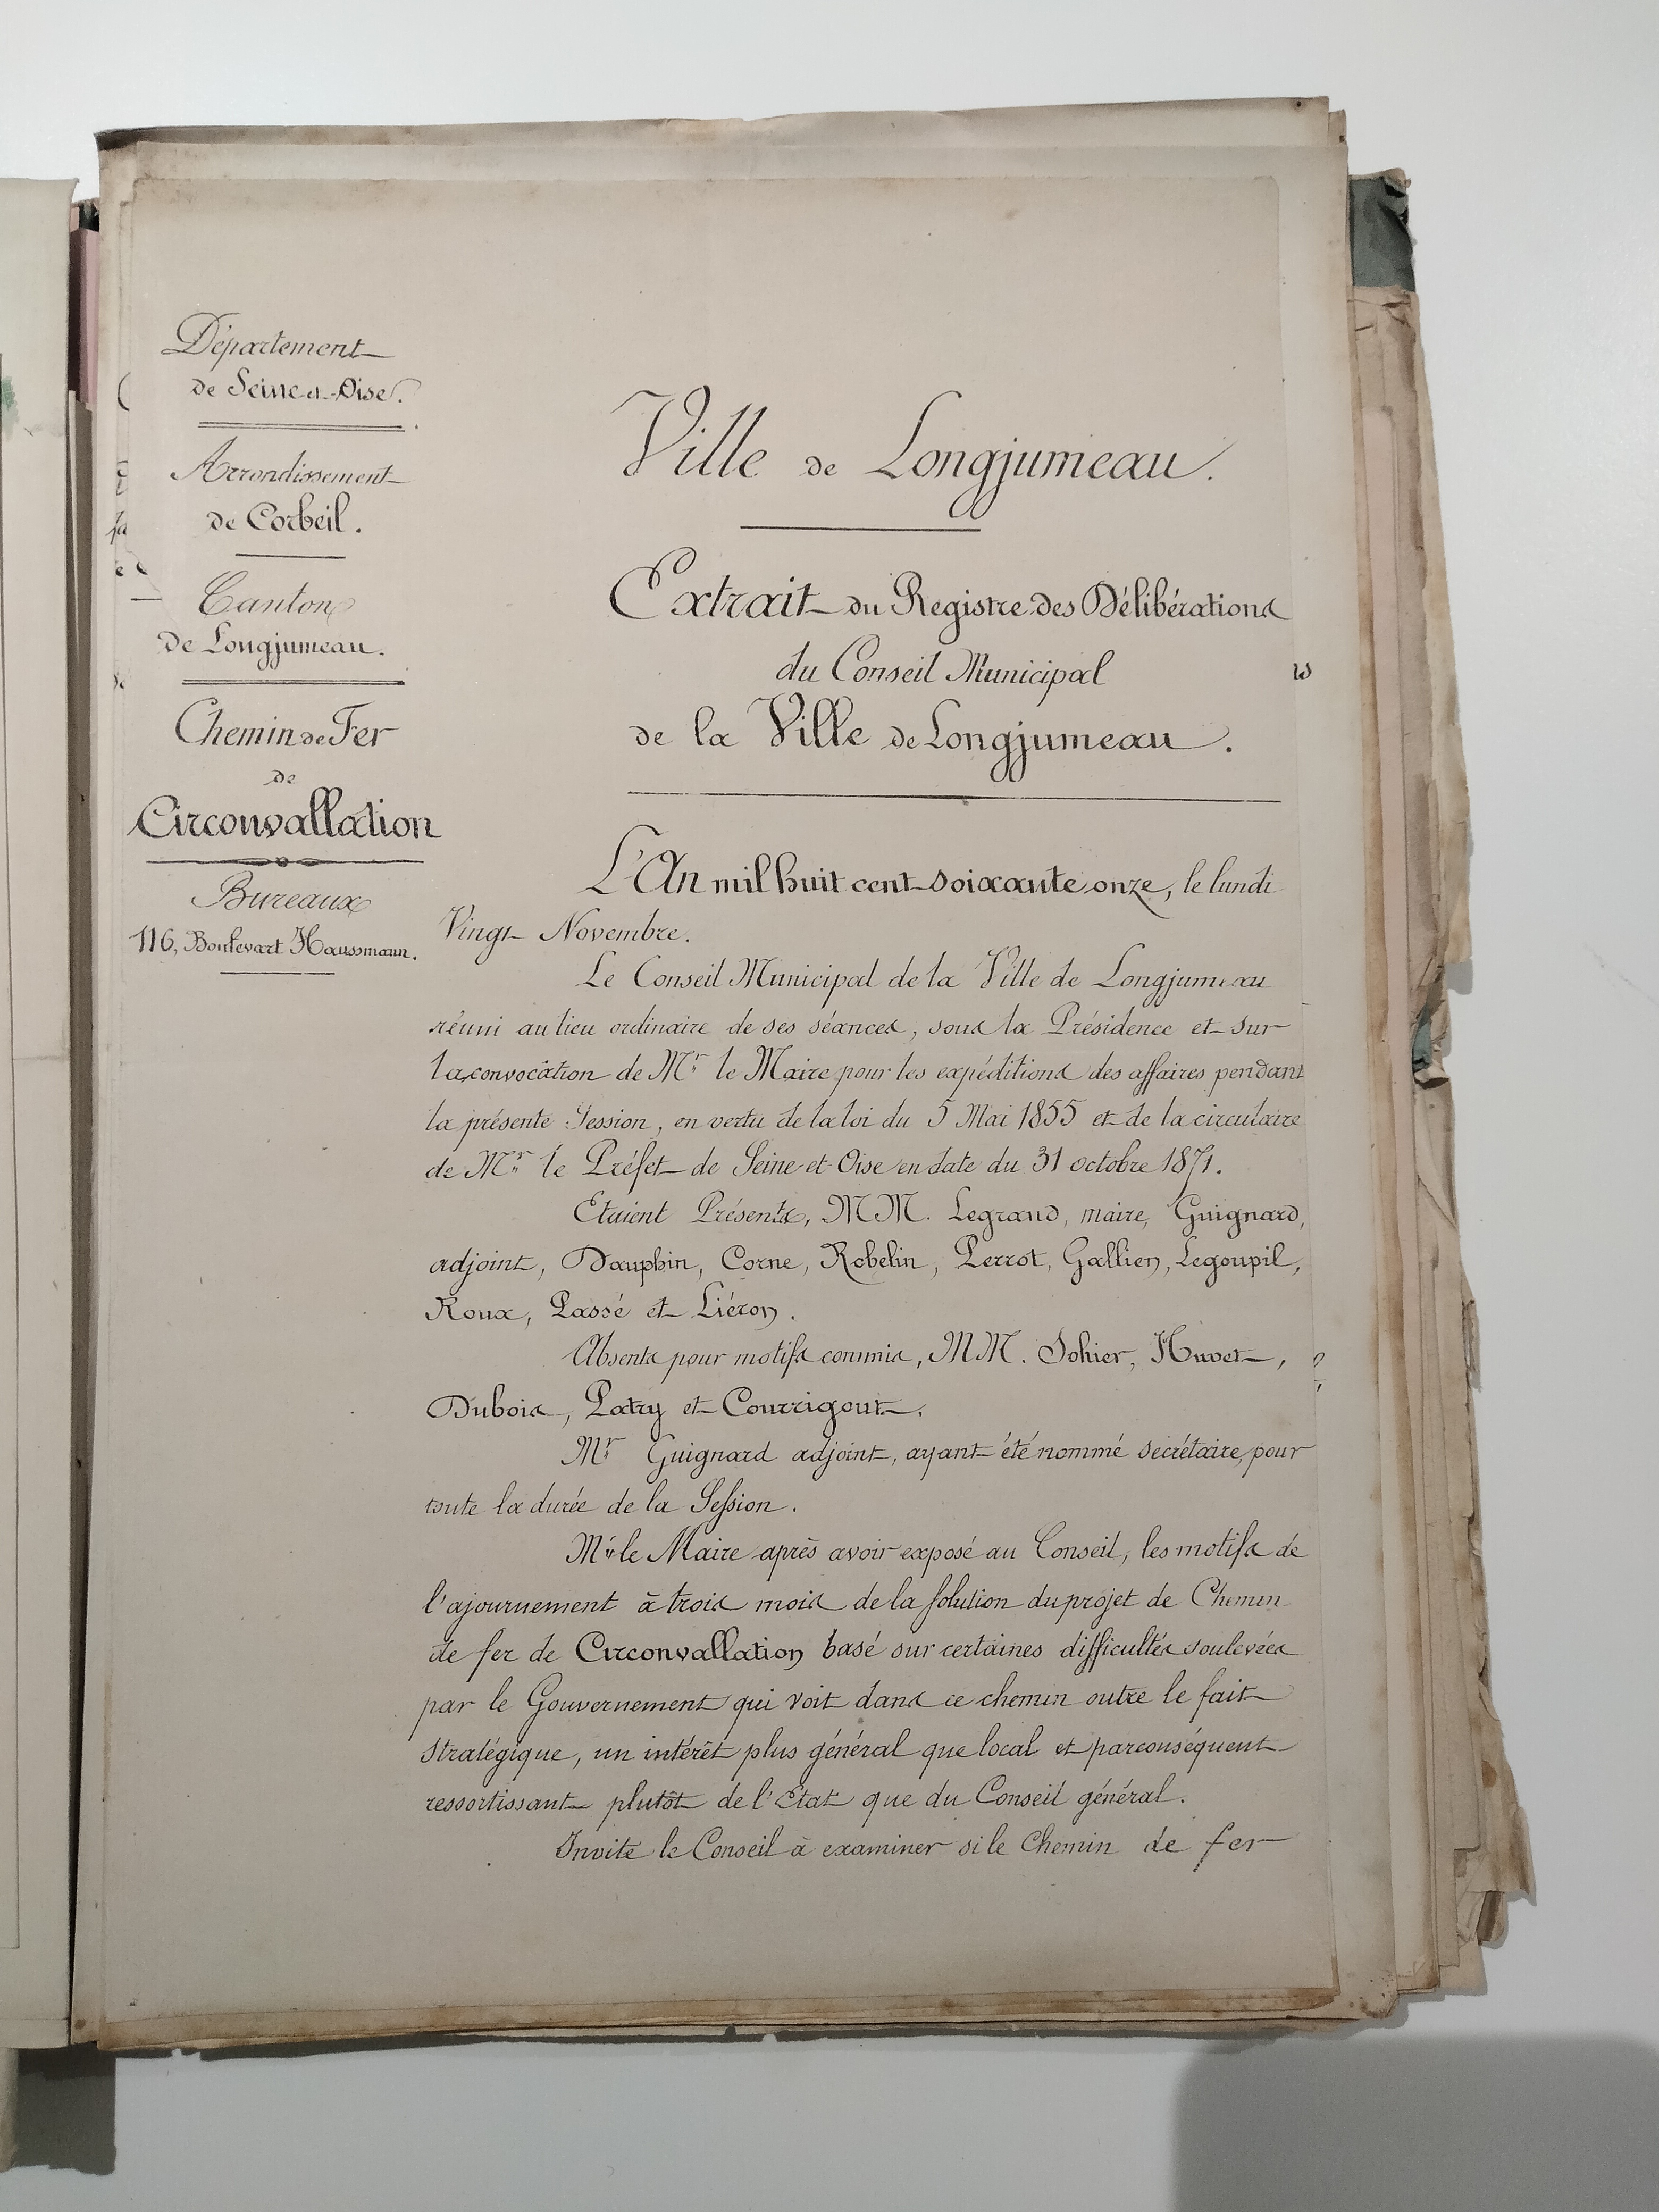 Département
de Seine-et-Oise.
Arrondissement
de Corbeil.
Canton
de Longjumeau.
Chemin de Fer
de
Circonvallation
Bureaux
116, Boulevart Haussmann.
Ville de Longjumeau.
Extrait du Registre des Délibérations
du Conseil Municipal
de la Ville de Longjumeau.
L'An mil huit cent soixante onze, le lundi
Vingt Novembre.
Le Conseil Municipal de la Ville de Longjumeau
réuni au lieu ordinaire de ses séances, sous la Présidence et sur
la convocation de Mr le Maire pour les expéditions des affaires pendant
la présente Session, en vertu de la loi du 5 Mai 1855 et de la circulaire
de Mr le Préfet de Seine-et-Oise en date du 31 octobre 1871.
Etaient Présents, MM. Legrand, maire, Guignard,
adjoint, Dauphin, Corne, Robelin, Perrot, Gallien, Legoupil,
Roux, Passé et Liéron.
Absents pour motifs connus, MM. Sohier, Huvet,
Dubois, Patry et Courrigout.
Mr Guignard adjoint, ayant été nommé secrétaire, pour
toute la durée de la Session.
Mr le Maire après avoir exposé au Conseil, les motifs de
l'ajournement à trois mois de la solution du projet de Chemin
de fer de Circonvallation basé sur certaines difficultés soulevées
par le Gouvernement qui voit dans ce chemin outre le fait
stratégique, un intérêt plus général que local et par conséquent
ressortissant plutôt de l'Etat que du Conseil général.
Invite le Conseil à examiner si le Chemin de fer